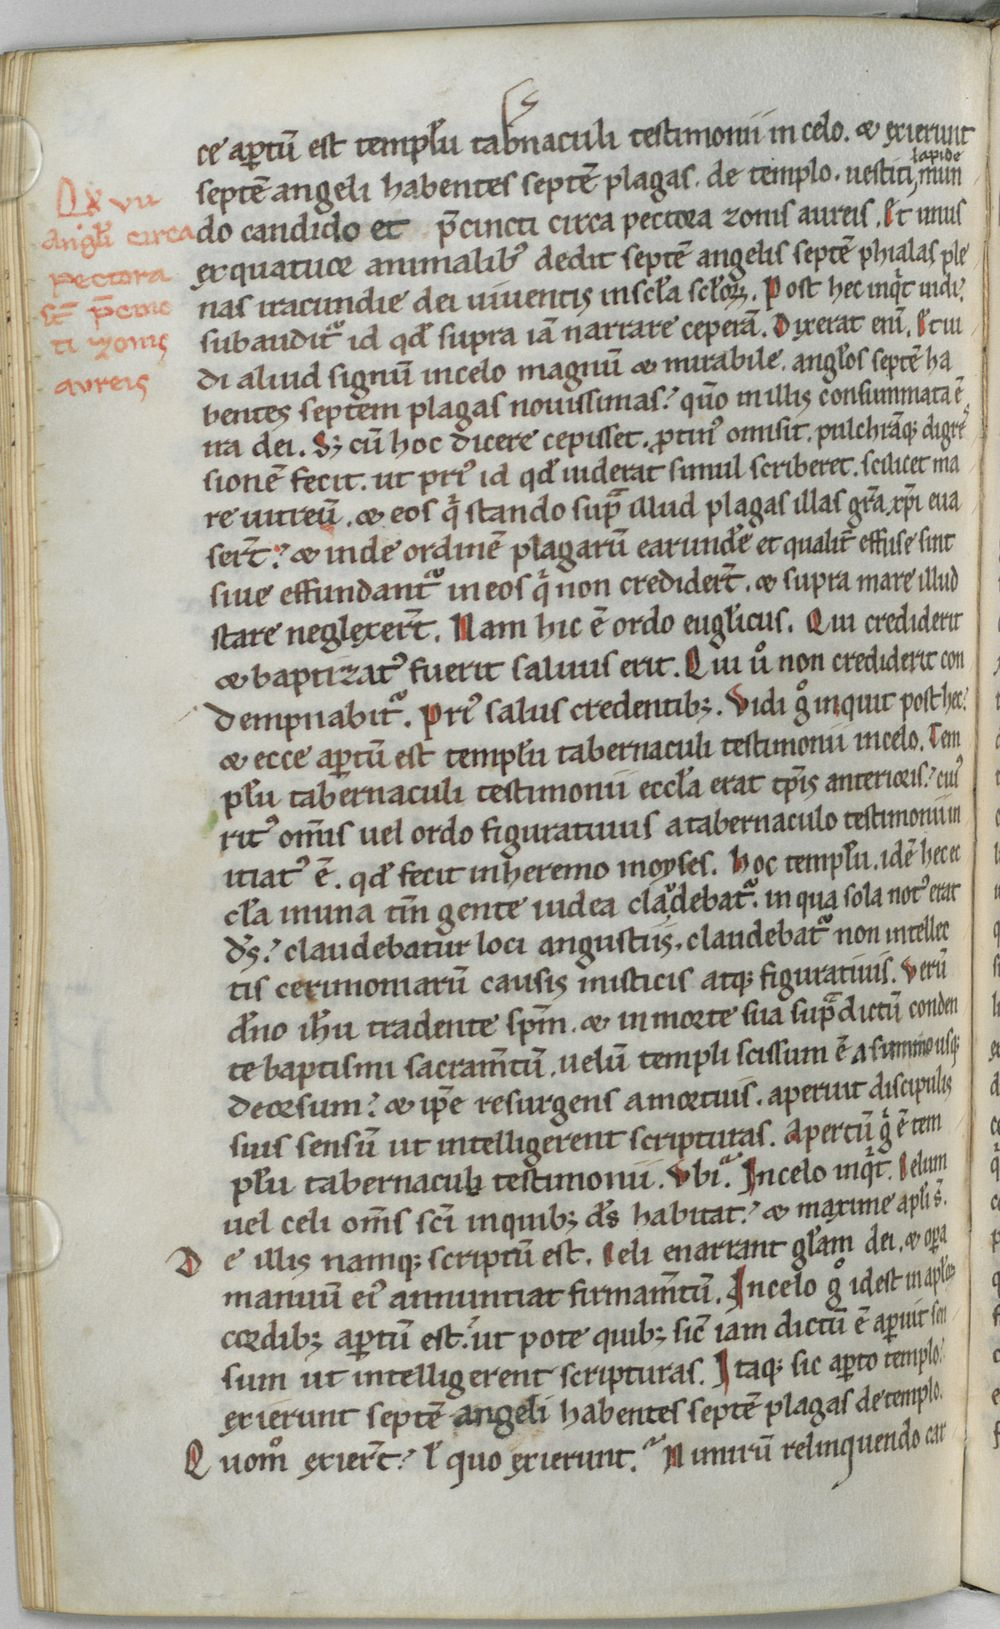 ce ap̱tũ est templ̃u tab̃naculi testimonii in celo. & exierunt
septẽ angeli habentes septẽ plagas. de templo. uestiti lapide mun
Qđ vii
angl̃i circa
pectora
st̃ p̃cinc
ti zonis
aureis
do candido et p̃cincti circa pectora zonis aureis. Et unus
ex quatuor animalibꝰ dedit septẽ angelis septẽ phialas ple
nas iracundie dei uiuentis in scl̃a scl̃oꝝ. Post hec inqͥt uidi.
subauditᷣ id qđ supra iã narrare ceperã. Dixerat eni̅. Et ui
di aliud signũ in celo magnũ & mirabile. angl̃os septẽ ha
bentes septem plagas nouissimas? qm̃o in illis consummata ẽ
ira dei. Sꝫ cũ hoc dicere cepisset. ꝓtinꝰ omisit. pulchrãqꝫ digreſ
sionẽ fecit. ut priꝰ id qđ uiderat simul scriberet. scilicet ma
re uitreũ. & eos qͥ stando supͣ illud plagas illas gr̃a xp̃i eua
ser̃t? & inde ordinẽ plagarũ earundẽ et qualit̃ effuse sint
siue effundantᷣ in eos qͥ non credider̃t. & supra mare illud
stare neglexer̃t. Nam hic ẽ ordo eugl̃icus. Qui crediderit
& baptizatꝰ fuerit saluus erit. Qui uͦ non crediderit con
dempnabitᷣ. Priꝰ salus credentibꝫ. Vidi gͦ inquit post hec?
& ecce ap̱tũ est templ̃u tabernaculi testimonii in celo. Tem
pl̃u tabernaculi testimonii eccl̃a erat tp̃is anterioris? cuiꝰ
ritꝰ om̃is uel ordo figuratiuus a tabernaculo testimonii in
itiatꝰ ẽ. qđ fecit in heremo moyses. Hoc templ̃u. idẽ hec ec
cl̃a in una tm̃ gente iudea claudebatᷣ. in qua sola notꝰ erat
ds̃? claudebatur loci angustiis. claudebatᷣ non intellec
tis cerimoniarũ causis misticis atqꝫ figuratiuis. Verũ
dñο ih̃u tradente sp̃m. & in morte sua supͣdictũ conden
te baptismi sacram̃tũ. uelũ templi scissum ẽ a summo usqꝫ
deorsum? & ip̃e resurgens a mortuis. aperuit discipulis
suis sensũ ut intelligerent scripturas. Apertũ gͦ ẽ tem
pl̃u tabernaculi testimonii. Vbi? In celo inqͥt. Celum
uel celi om̃s sc̃i in quibꝫ ds̃ habitat? & maxime apl̃i s̃.
De illis namqꝫ scriptũ est. Celi enarrant gl̃am dei. & op̱a
manuũ eiꝰ annuntiat firmam̃tũ. In celo gͦ id est in apl̃oꝝ
cordibꝫ ap̱tũ est? ut pote quibꝫ sic̃ iam dictũ ẽ aperuit sen
sum ut intelligerent scripturas. Itaqꝫ sic ap̱to templo?
exierunt septẽ angeli habentes septẽ plagas de templo.
Quomͦ exier̃t? l̃ quo exierunt? Nimirũ relinquendo car